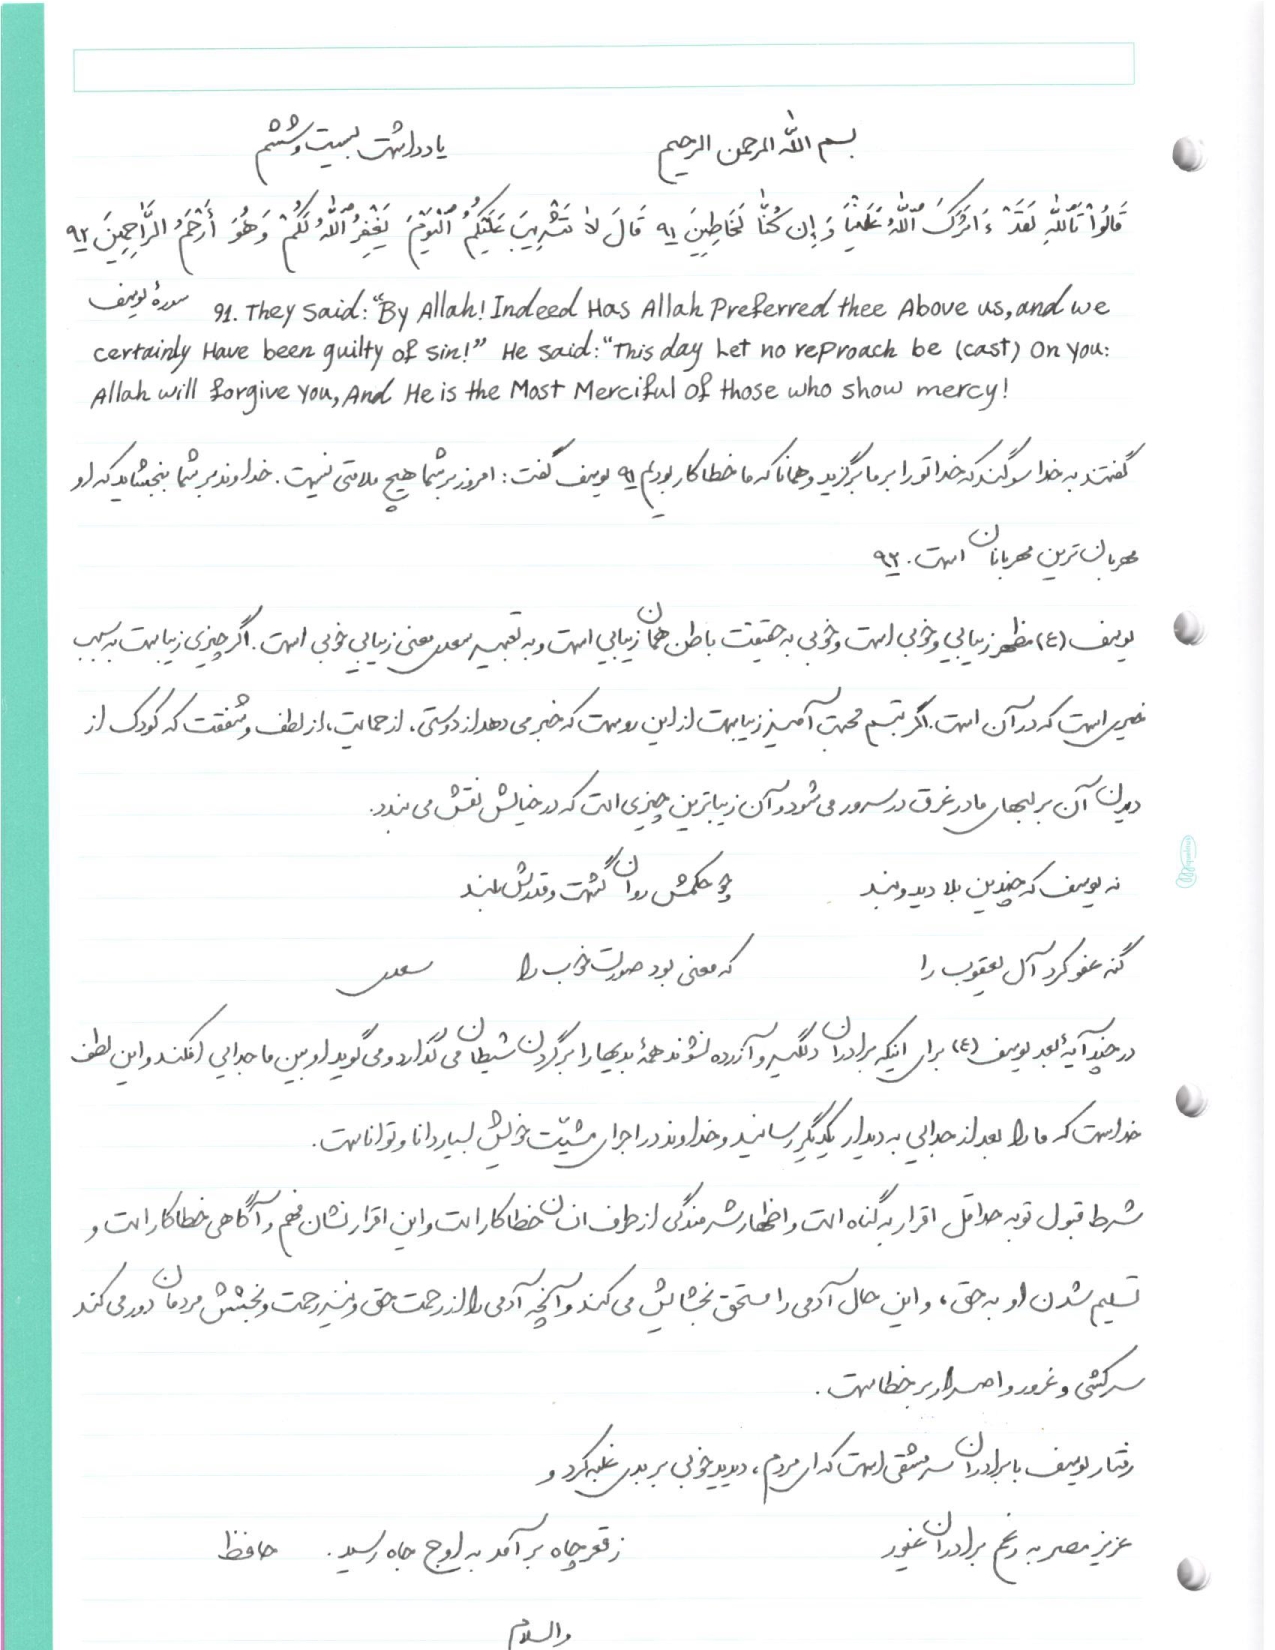 بسم الله الرحمن الرحیم یادداشت بیست و ششم
قَالُوا۟ تَٱللَّهِ لَقَدْ ءَاثَرَكَ ٱللَّهُ عَلَيْنَا وَإِن كُنَّا لَخَاطِئِينَ ۹۱ قَالَ لَا تَثْرِيبَ عَلَيْكُمُ ٱلْيَوْمَ يَغْفِرُ ٱللَّهُ لَكُمْ وَهُوَ أَرْحَمُ الرَّاحِمِينَ ۹۲
سورهٔ یوسف
91. They said: "By Allah! Indeed Has Allah Preferred thee Above us, and we
certainly Have been guilty of sin!" He said: "This day Let no reproach be (cast) On you:
Allah will forgive you, And He is the Most Merciful of those who show mercy!
گفتند به خدا سوگند که خدا تو را بر ما برگزید و همانا که ما خطاکار بودیم ۹۱ یوسف گفت: امروز بر شما هیچ ملامتی نیست. خداوند بر شما ببخشاید که او
مهربان ترین مهربانان است. ۹۲
یوسف (ع) مظهر زیبایی و خوبی است و خوبی به حقیقت باطن همان زیبایی است و به تعبیر سعدی معنی زیبایی خوبی است. اگر چیزی زیباست به سبب
خیری است که در آن است. اگر تبسم محبت آمیز زیباست از این روست که خبر می دهد از دوستی، از حمایت، از لطف و شفقت که کودک از
دیدن آن بر لبهای مادر غرق در سرور می شود و آن زیباترین چیزی است که در خیالش نقش می بندد.
نه یوسف که چندین بلا دید و بند چو حکمش روان گشت و قدرش بلند
گنه عفو کرد آل یعقوب را که معنی بود صورت خوب را سعدی
در چند آیهٔ بعد یوسف (ع) برای اینکه برادران دلگیر و آزرده نشوند همهٔ بدیها را بر گردن شیطان می گذارد و می گوید او بین ما جدایی افکند و این لطف
خداست که ما را بعد از جدایی به دیدار یکدیگر رسانید و خداوند در اجرای مشیّت خویش بسیار دانا و تواناست.
شرط قبول توبه حداقل اقرار به گناه است و اظهار شرمندگی از طرف انسان خطاکار است و این اقرار نشان فهم و آگاهی خطاکار است و
تسلیم شدن او به حق، و این حال آدمی را مستحق بخشایش می کند و آنچه آدمی را از رحمت حق و نیز رحمت و بخشش مردمان دور می کند
سرکشی و غرور و اصرار بر خطاست.
رفتار یوسف با برادران سرمشقی است که ای مردم، دیدید خوبی بر بدی غلبه کرد و
عزیز مصر به رغم برادران غیور ز قعر چاه بر آمد به اوج جاه رسید. حافظ
والسلام